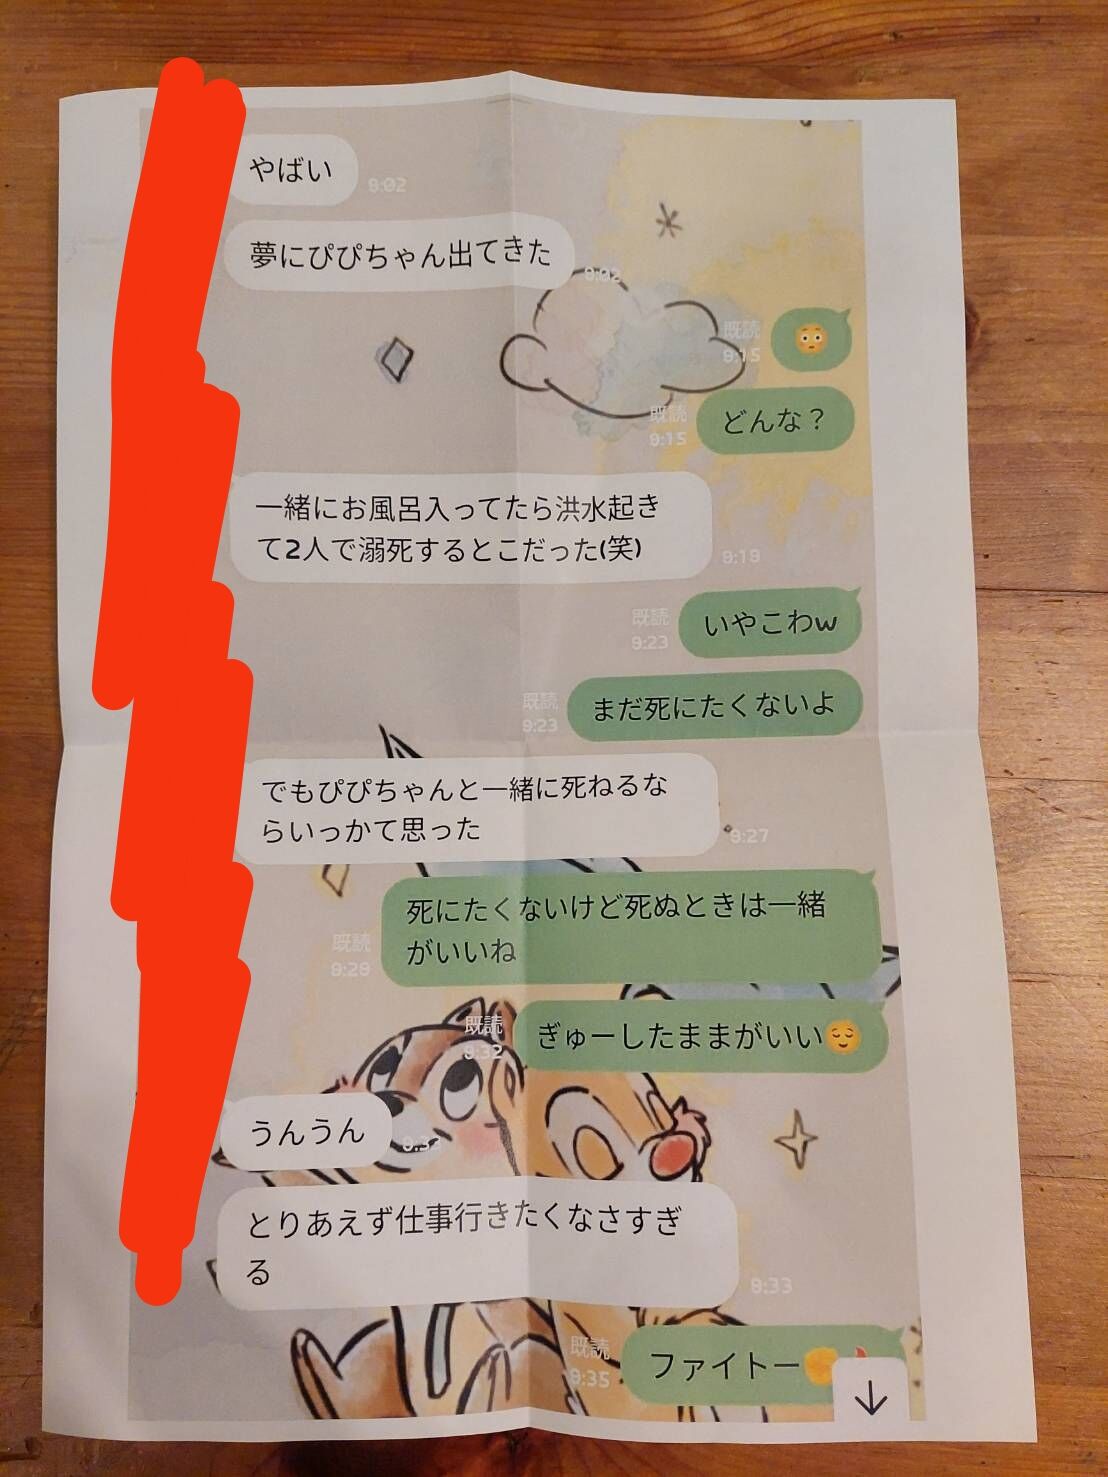 やばい
9:02
夢にぴぴちゃん出てきた
9:02
既読
9:15
😳
既読
9:15
どんな?
一緒にお風呂入ってたら洪水起き
て2人で溺死するとこだった(笑)
9:19
既読
9:23
いやこわw
既読
9:23
まだ死にたくないよ
でもぴぴちゃんと一緒に死ねるな
らいっかて思った
9:27
死にたくないけど死ぬときは一緒
がいいね
既読
9:29
既読
9:32
ぎゅーしたままがいい😌
うんうん
9:32
とりあえず仕事行きたくなさすぎ
る
9:33
既読
9:35
ファイトー